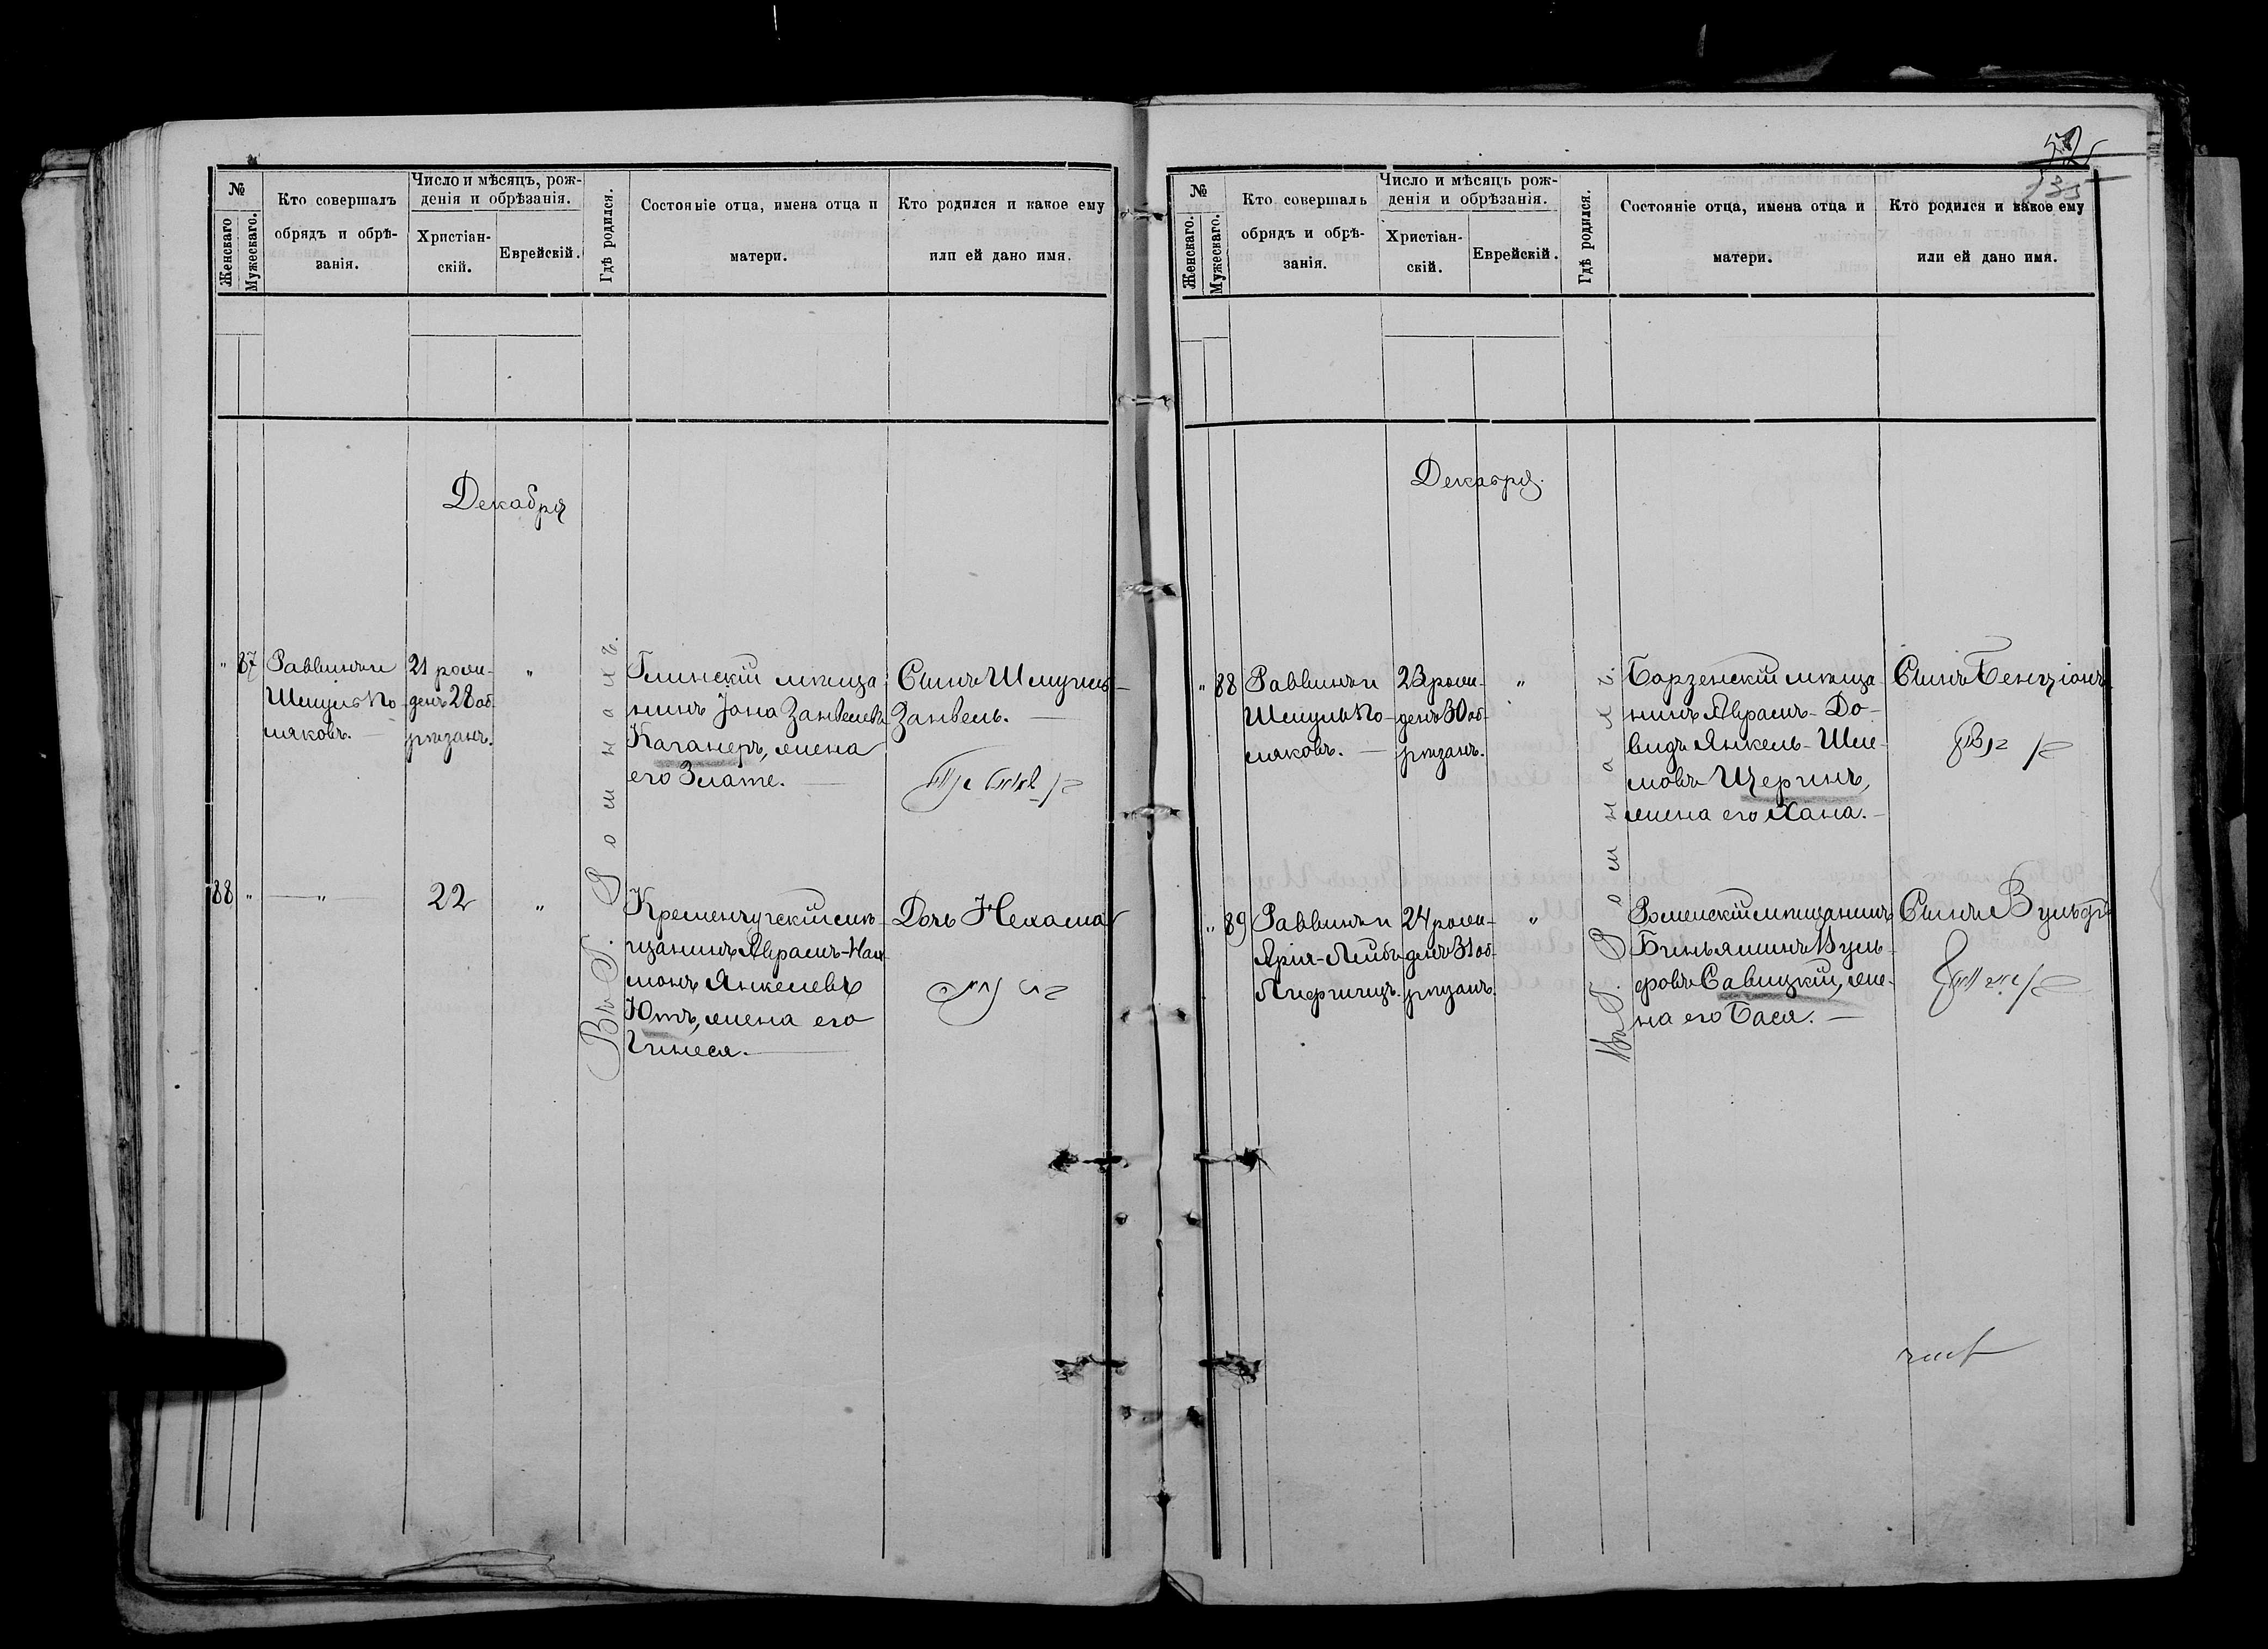 №
Женскаго
Мужескаго.
Кто совершалъ
обрядъ и обрѣ-
занія.
Число и мѣсяцъ, рож-
денія и обрѣзанія.
Христіан-
скій.
Еврейскій.
Гдѣ родился.
Состояніе отца, имена отца и
матери.
Кто родился и какое ему
или ей дано имя.
Декабря
" 87
Раввинъ и
Шмуль По-
ляковъ.
21 рож-
денъ 28 об-
рѣзанъ.
"
Въ Г. Ромнахъ.
Глинскій мѣща-
нинъ Іона Занвелевъ
Каганеръ, жена
его Злате.
Сынъ Шмуиль-
Занвель.
88 "
"
22
"
Кременчугскій мѣ-
щанинъ Абрамъ-
Янкелевъ
Ютъ, жена его
Гинеся.
Дочь Нехама
52
№
Женскаго.
Мужескаго.
Кто совершалъ
обрядъ и обрѣ-
занія.
Число и мѣсяцъ рож-
денія и обрѣзанія.
Христіан-
скій.
Еврейскій.
Гдѣ родился.
Состояніе отца, имена отца и
матери.
Кто родился и какое ему
или ей дано имя.
Декабря.
" 88
Раввинъ и
Шмуль По-
ляковъ.
23 рож-
денъ 30 об-
рѣзанъ.
"
Въ Г. Ромнахъ.
Борзенскій мѣща-
нинъ Абрамъ-До-
видъ Янкель-Шле-
мовъ Щеринъ,
жена его Хана.
Сынъ Бенціонъ
" 89
Раввинъ и
Арія-Лейбъ
Лифшицъ.
24 рож-
денъ 31 об-
рѣзанъ.
"
Роменскій мѣщанинъ
Биньяминъ Вуль-
фовъ Савицкій, же-
на его Бася.
Сынъ Вульфъ